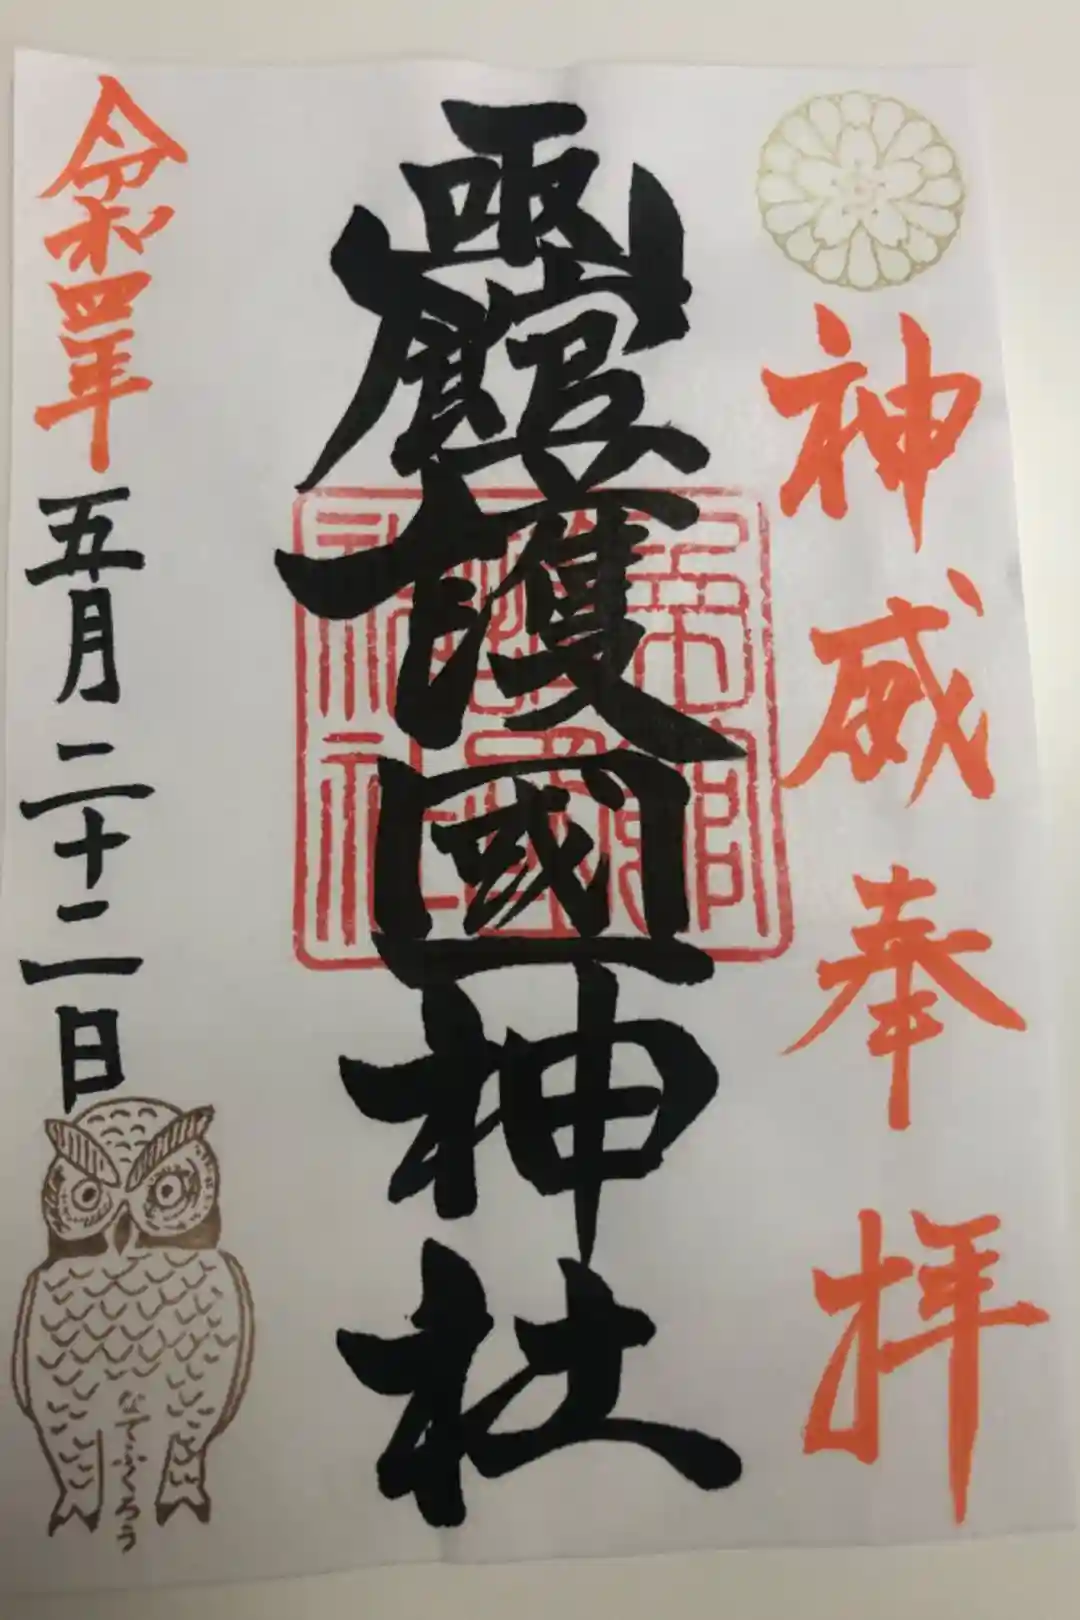 神威奉拝
凾館護國神社
令和四年五月二十二日
なでふくろう